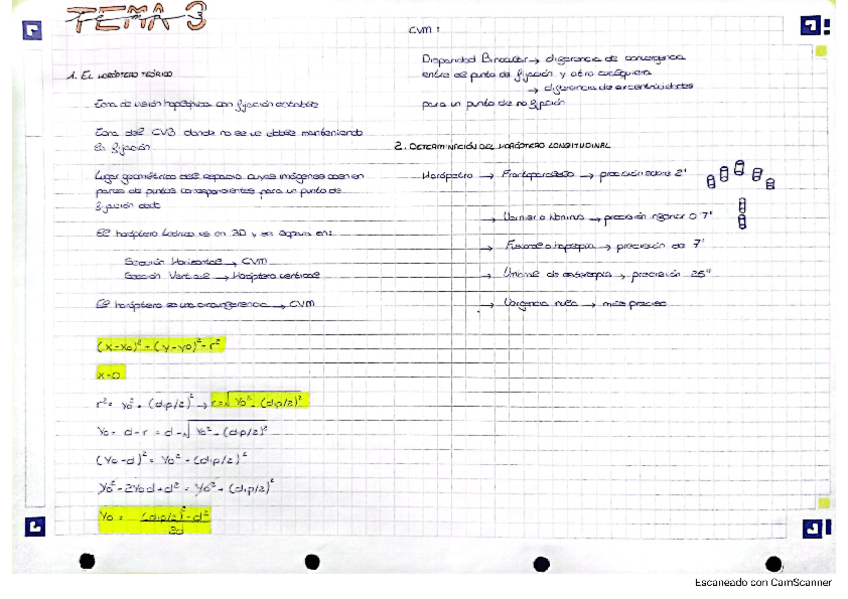 TEMA 3
1. EL HORÓPTERO TEÓRICO
Zona de visión haplópica con fijación estable
Zona del CV3 donde no se ve doble manteniendo
la fijación
Lugar geométrico del espacio cuyas imágenes caen en
pares de puntos correspondientes para un punto de
fijación dado
El horóptero teórico es en 3D y se separa en:
Sección Horizontal → CVM
Sección Vertical → Horóptero vertical
El horóptero es una circunferencia → CVM
(x-x₀)² + (y-y₀)² = r²
x=0
r² = y₀² + (dip/2)² → r = √y₀² + (dip/2)²
y₀ = d-r = d-√y₀² + (dip/2)²
(y₀-d)² = y₀² + (dip/2)²
y₀² - 2y₀d + d² = y₀² + (dip/2)²
y₀ = (dip/2)² - d² / 2d
CVM :
Disparidad Binocular → diferencia de convergencia
entre el punto de fijación y otro cualquiera
→ diferencia de excentricidades
para un punto de no fijación
2. DETERMINACIÓN DEL HORÓPTERO LONGITUDINAL
Horóptero → Frontoparalelo → precisión sobre 2'
→ Vernier o Nonius → precisión 0'7'
→ Fusional o haplopía → precisión de 7'
→ Umbral de estereopsia → precisión 25"
→ Vergencia nula → más preciso
Escaneado con CamScanner